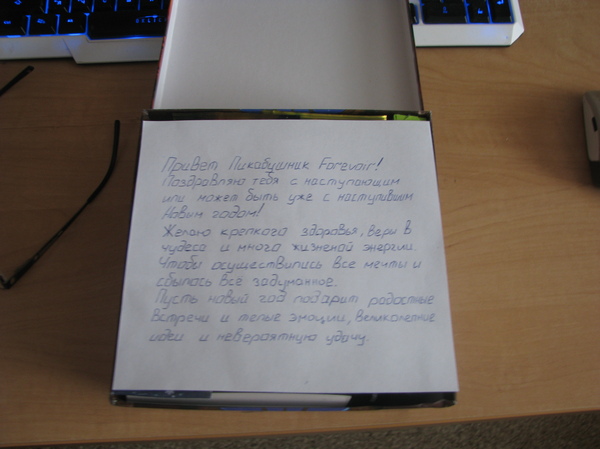 Привет Пикабушник Forevoir!
Поздравляю тебя с наступающим
или может быть уже с наступившим
Новым годом!
Желаю крепкого здоровья, веры в
чудеса и много жизненой энергии.
Чтобы осуществились все мечты и
сбылось все задуманное.
Пусть новый год подарит радостные
встречи и теплые эмоции, великолепные
идеи и невероятную удачу.